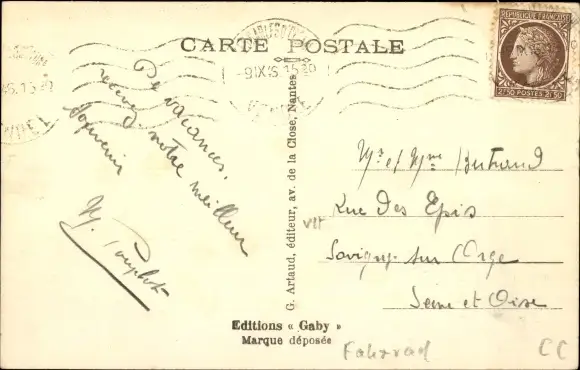 CARTE POSTALE
REPUBLIQUE FRANÇAISE
2F50 POSTES 2F50
-9 IX 45 15 30
De vacances,
recevez notre meilleur
souvenir
Mr et Mme Bertrand
Rue Des Epis
Savigny sur Orge
Seine et Oise
G. Artaud, éditeur, av. de la Close, Nantes
VII
Editions « Gaby »
Marque déposée
Fahrrad
CC